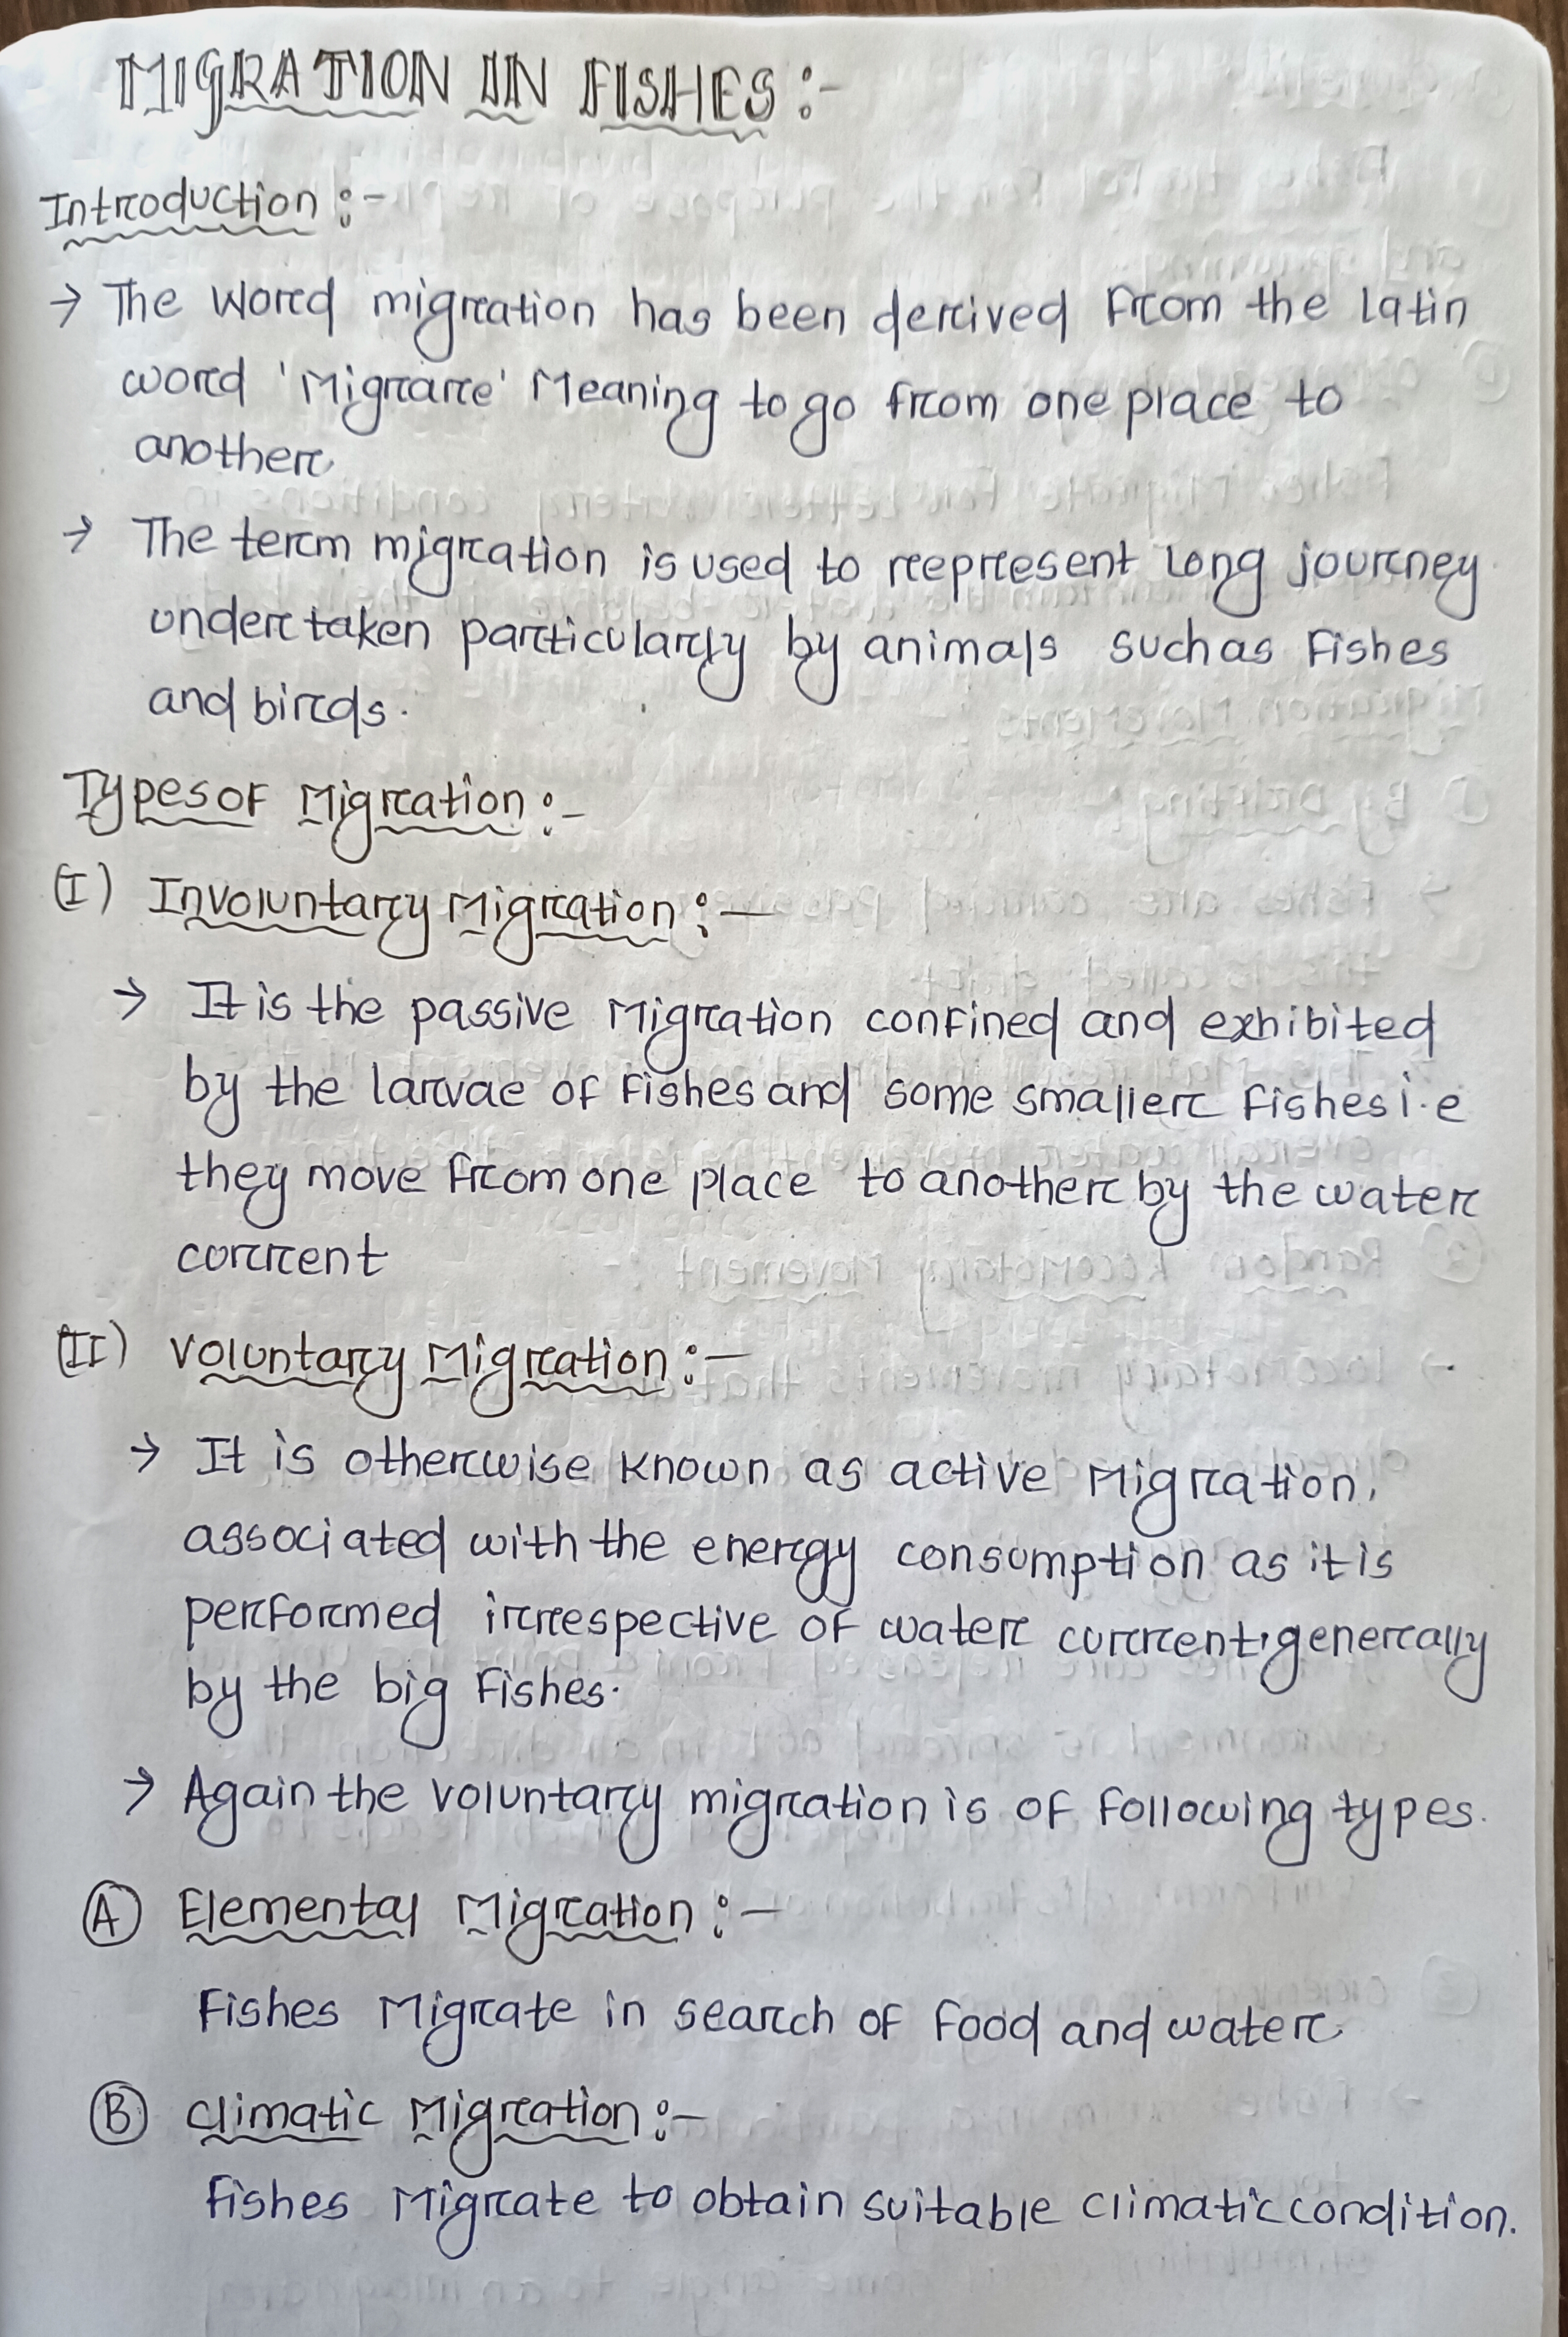 MIGRATION IN FISHES :-
Introduction :-
→ The word migration has been derived from the latin
word 'Migrare' Meaning to go from one place to
another.
→ The term migration is used to represent long journey
undertaken particularly by animals such as Fishes
and birds.
Types of Migration :-
(I) Involuntary Migration :-
→ It is the passive Migration confined and exhibited
by the larvae of Fishes and some smaller fishes i.e
they move from one place to another by the water
corrent
(II) Voluntary Migration :-
→ It is otherwise known as active Migration,
associated with the energy consumption as it is
performed irrespective of water current, generally
by the big Fishes.
→ Again the voluntary migration is of following types.
(A) Elemental Migration :-
Fishes Migrate in search of food and water.
(B) climatic Migration :-
fishes Migrate to obtain suitable climatic condition.